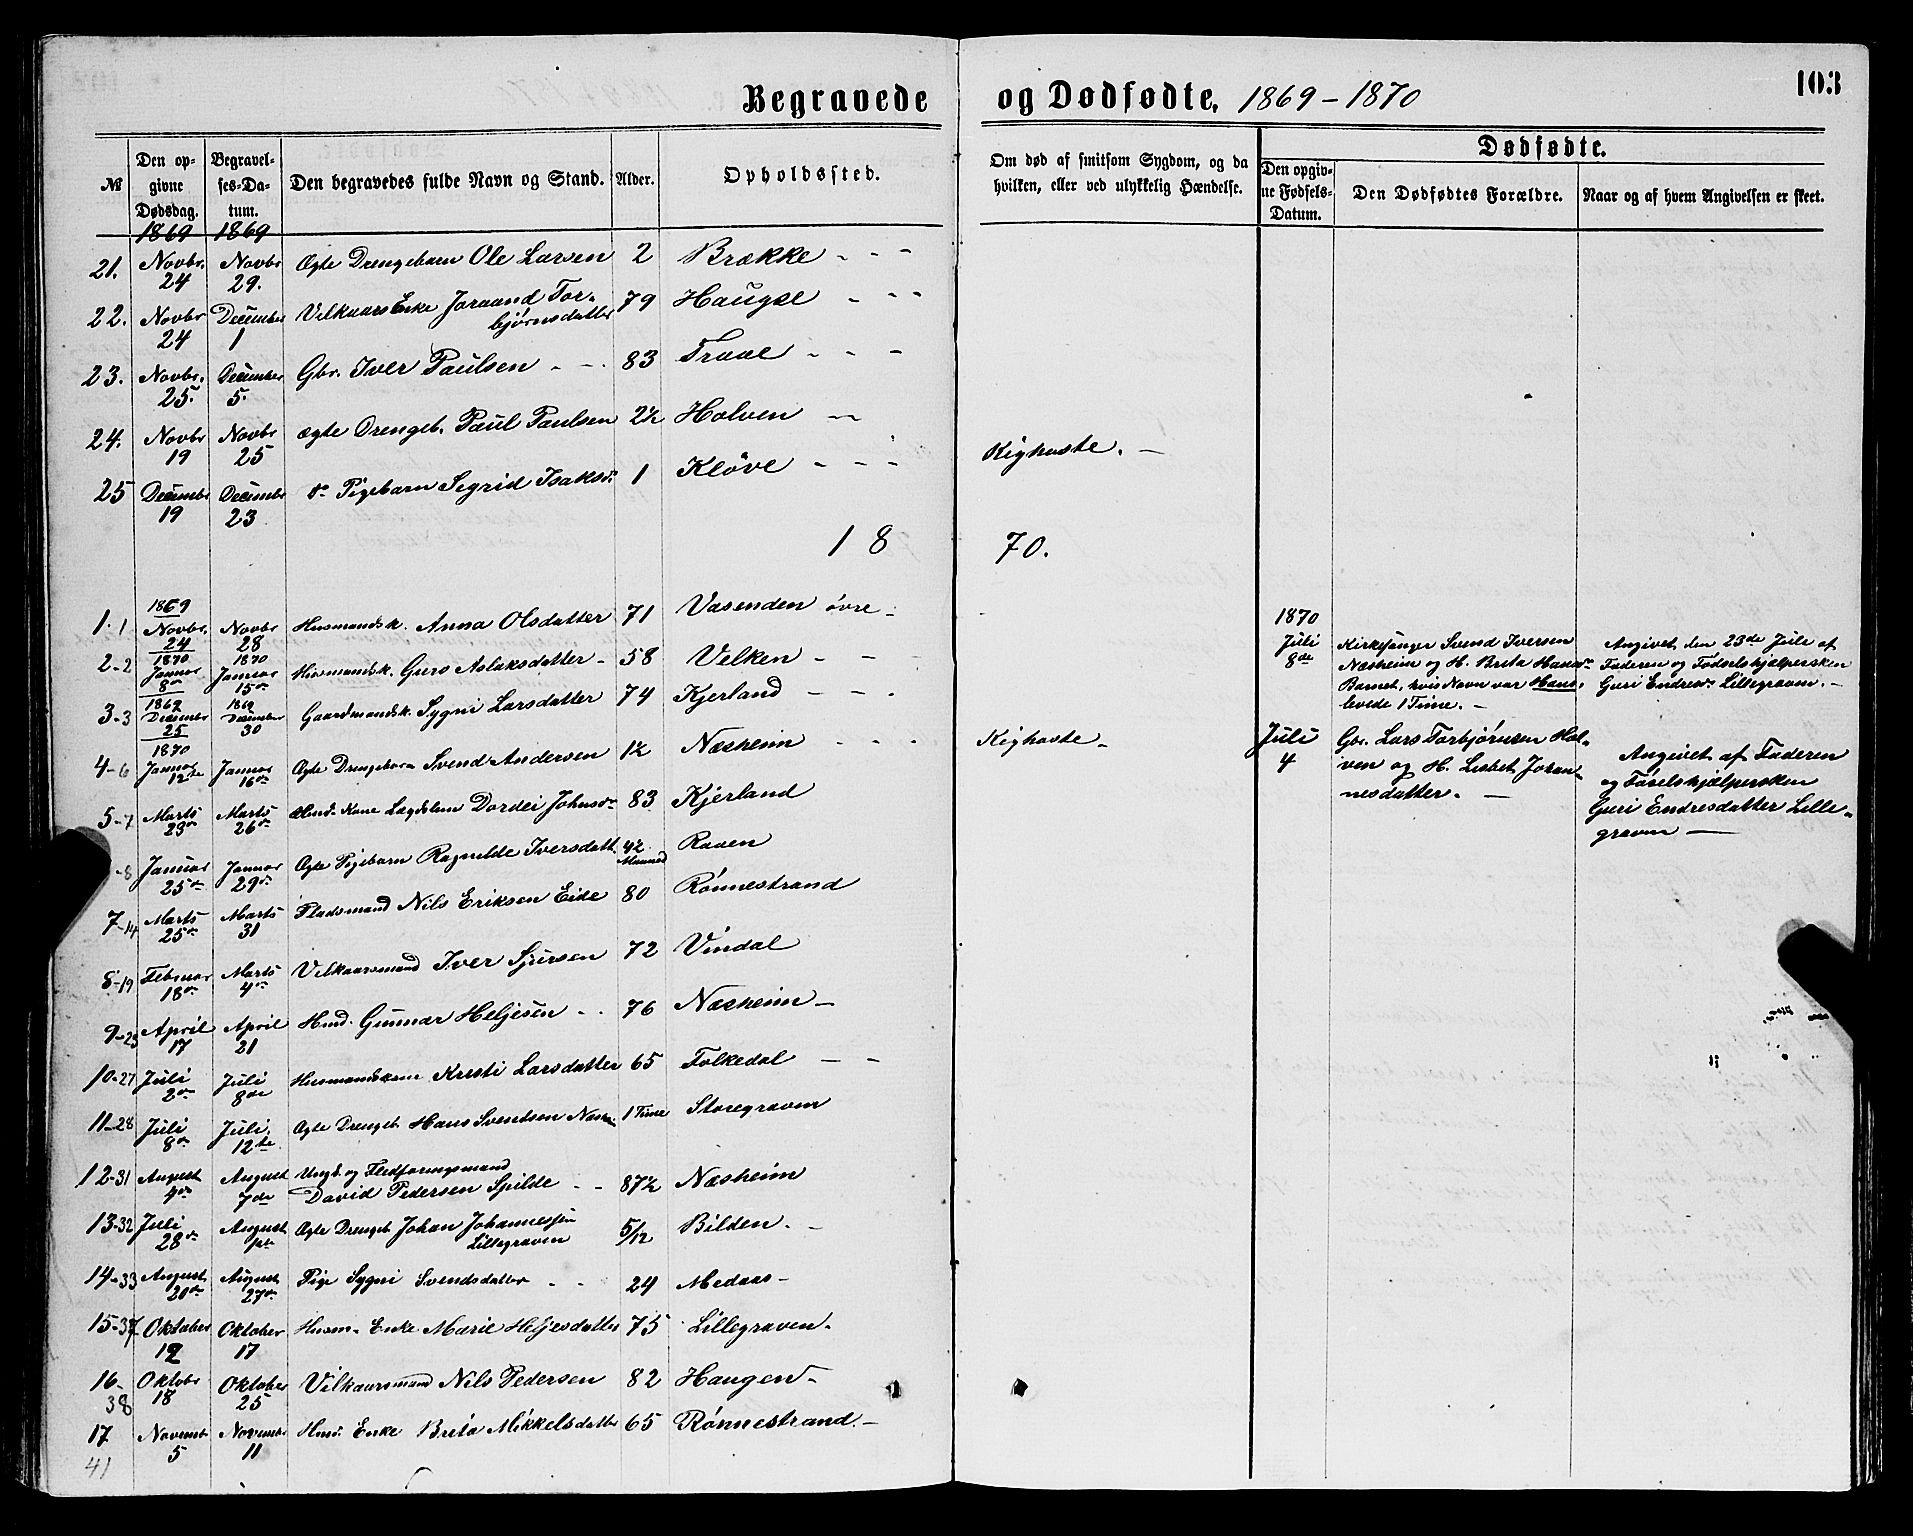 Begravede og Dødfødte, 1869-1870
103
№
Den opgivne Dødsdag.
Begravelses-Datum.
Den begravedes fulde Navn og Stand.
Alder.
Opholdssted.
Om død af smitsom Sygdom, og da hvilken, eller ved ulykkelig Hændelse.
Dødfødte.
Den opgivne Fødsels-Datum.
Den Dødfødtes Forældre.
Naar og af hvem Angivelsen er skeet.
1869 1869
21. Novbr. 24 Novbr 29. Ægte Drengebarn Ole Larsen 2 Brække - - -
22. Novbr 24 December 1 Vilkaars Enke Joraand Torbjørnsdatter 79 Haugse - - -
23. Novbr. 25. December 5. Gbr. Iver Paulsen - - 83 Traae - - -
24. Novbr 19 Novbr 25 Ægte Drengeb. Paul Paulsen 2½ Holven - Kighoste. -
25 Decembr 19 Decembr 23 do Pigebarn Segrid Isaksdr 1 Kløve - - -
1870.
1.1 1869 Novbr. 24 Novbr 28 Husmandsk. Anna Olsdatter 71 Vasenden øvre -
2-2 1870 Januar 8de 1870 Januar 15de Husmandsk. Guro Aslaksdatter - 58 Velken - - -
3-3 1869 December 25 1869 December 30 Gaardmandsk. Sygni Larsdatter 74 Kjerland - - -
4-6 1870 Januar 12te Januar 16de Ægte Drengebarn Svend Andersen 1½ Næsheim - - - Kighoste -
5-7 Marts 23de Marts 26de Kone Lægdslem Dordei Johnsdr 83 Kjerland
-8 Januar 25de Januar 29de Ægte Pigebarn Ragnilde Iversdatt. 4½ Maaned Raaen
7-14 Marts 25de Marts 31 Pladsmand Nils Eriksen Eide 80 Rønnestrand
8-19 Februar 18de Marts 4de Vilkaarsmand Iver Sjursen 72 Vindal
9-23 April 17 April 21 Hmd. Gunnar Heljesen - - 76 Næsheim -
10-27 Juli 2de Juli 8de Husmandskone Kristi Larsdatter 65 Folkedal - -
11-28 Juli 8de Juli 12te Ægte Drengeb. Hans Svendsen Næsh. 1 Time Storegraven
12-31 August 4de August 7de Ungk. og Fledføringsmand David Pedersen Spilde - - 87½ Næsheim
13-32 Juli 28de August 1ste Ægte Drengeb. Johan Johannessen Lillegraven 5/12 Bilden. -
14-33 August 20de August 27de Pige Sygni Svendsdatter - - 24 Medaas -
15-37 Oktober 12 Oktober 17 Husm. Enke Marie Heljesdatter 75 Lillegraven.
16-38 Oktobr 18 Oktober 25 Vilkaarsmand Nils Pedersen 82 Haugen -
17 41 Novembr 5 Novembr 11 Hmd. Enke Brita Mikkelsdatter 65 Rønnestrand. -
1870
Juli 8de
Kirkesanger Svend Iversen
Næsheim og H. Brita Hansdr
Barnet, hvis Navn var Hans,
levede 1 Time. -
Angivet den 23de Juli af
Faderen og Fødselshjælpersken
Guri Endresdr Lillegraven. -
Juli 4
Gbr. Lars Torbjørnsen Hol-
ven og H. Lisbet Johan-
nesdatter. -
Angivet af Faderen
og Fødselshjælpersken
Guri Endresdatter Lille-
graven -